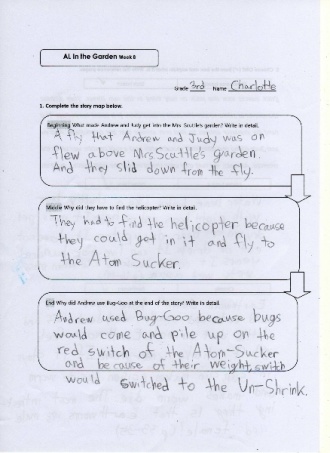 AL in the Garden Week 8
Grade 3rd Name Charlotte
1. Complete the story map below.
Beginning What made Andrew and Judy get into the Mrs. Scuttle's garden? Write in detail.
A fly that Andrew and Judy was on
flew above Mrs Scuttle's garden.
And they slid down from the fly.
Middle Why did they have to find the helicopter? Write in detail.
They had to find the helicopter because
they could get in it and fly to
the Atom Sucker.
End Why did Andrew use Bug-Goo at the end of the story? Write in detail.
Andrew used Bug-Goo because bugs
would come and pile up on the
red switch of the Atom-Sucker
and because of their weight, switch
would switched to the Un-Shrink.